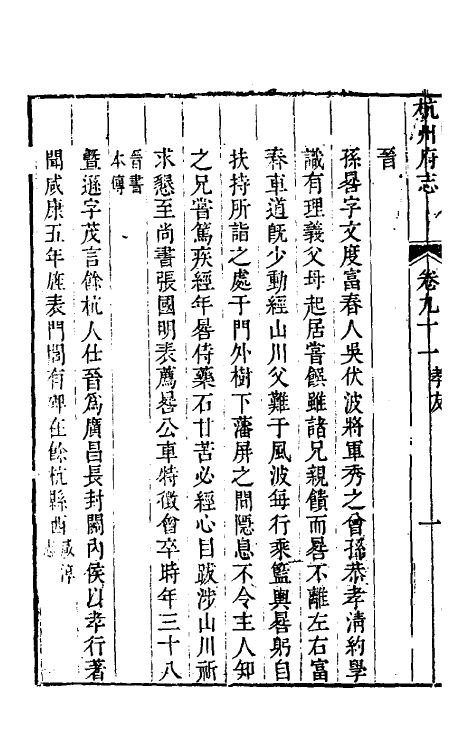 杭州府志
卷九十一 孝友
一
晉
孫晷字文度富春人吳伏波將軍秀之曾孫恭孝清約學
識有理義父母起居嘗饌雖諸兄親饋而晷不離左右富
春車道旣少動經山川父難于風波每行乘籃輿晷躬自
扶持所詣之處于門外樹下藩屏之間隱息不令主人知
之兄嘗篤疾經年晷侍藥石甘苦必經心目跋涉山川祈
求懇至尚書張國明表薦晷公車特徵會卒時年三十八
晉書
本傳
暨遜字茂言餘杭人仕晉爲廣昌長封關內侯以孝行著
聞咸康五年旌表門閭有碑在餘杭縣西
咸淳
志